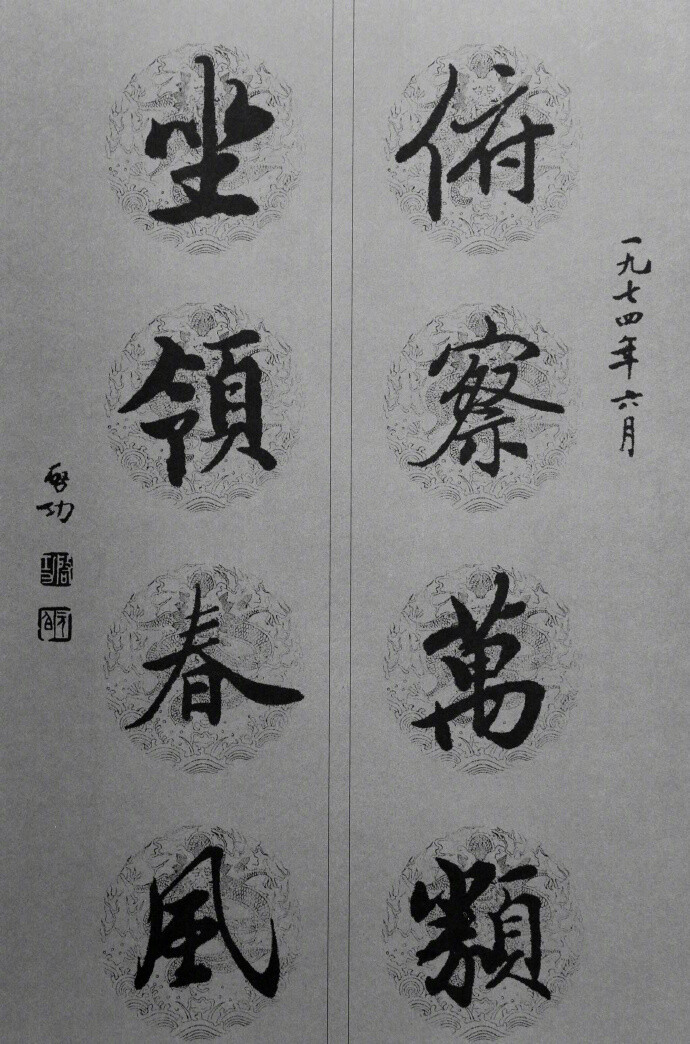 一九七四年六月
俯察萬類
坐領春風
啟功